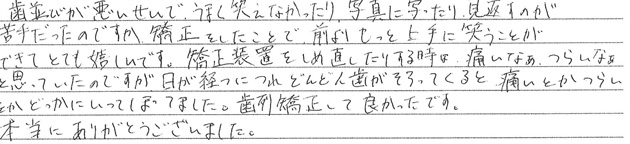 歯並びが悪いせいで、うまく笑えなかったり、写真に写ったり、見返すのが
苦手だったのですが、矯正をしたことで、前よりもっと上手に笑うことが
できてとても嬉しいです。矯正装置をしめ直したりする時は、痛いなぁ、つらいなぁ
と思っていたのですが日が経つにつれどんどん歯がそろってくると、痛いとかつらい
とかどっかにいってしまってました。歯列矯正して良かったです。
本当にありがとうございました。